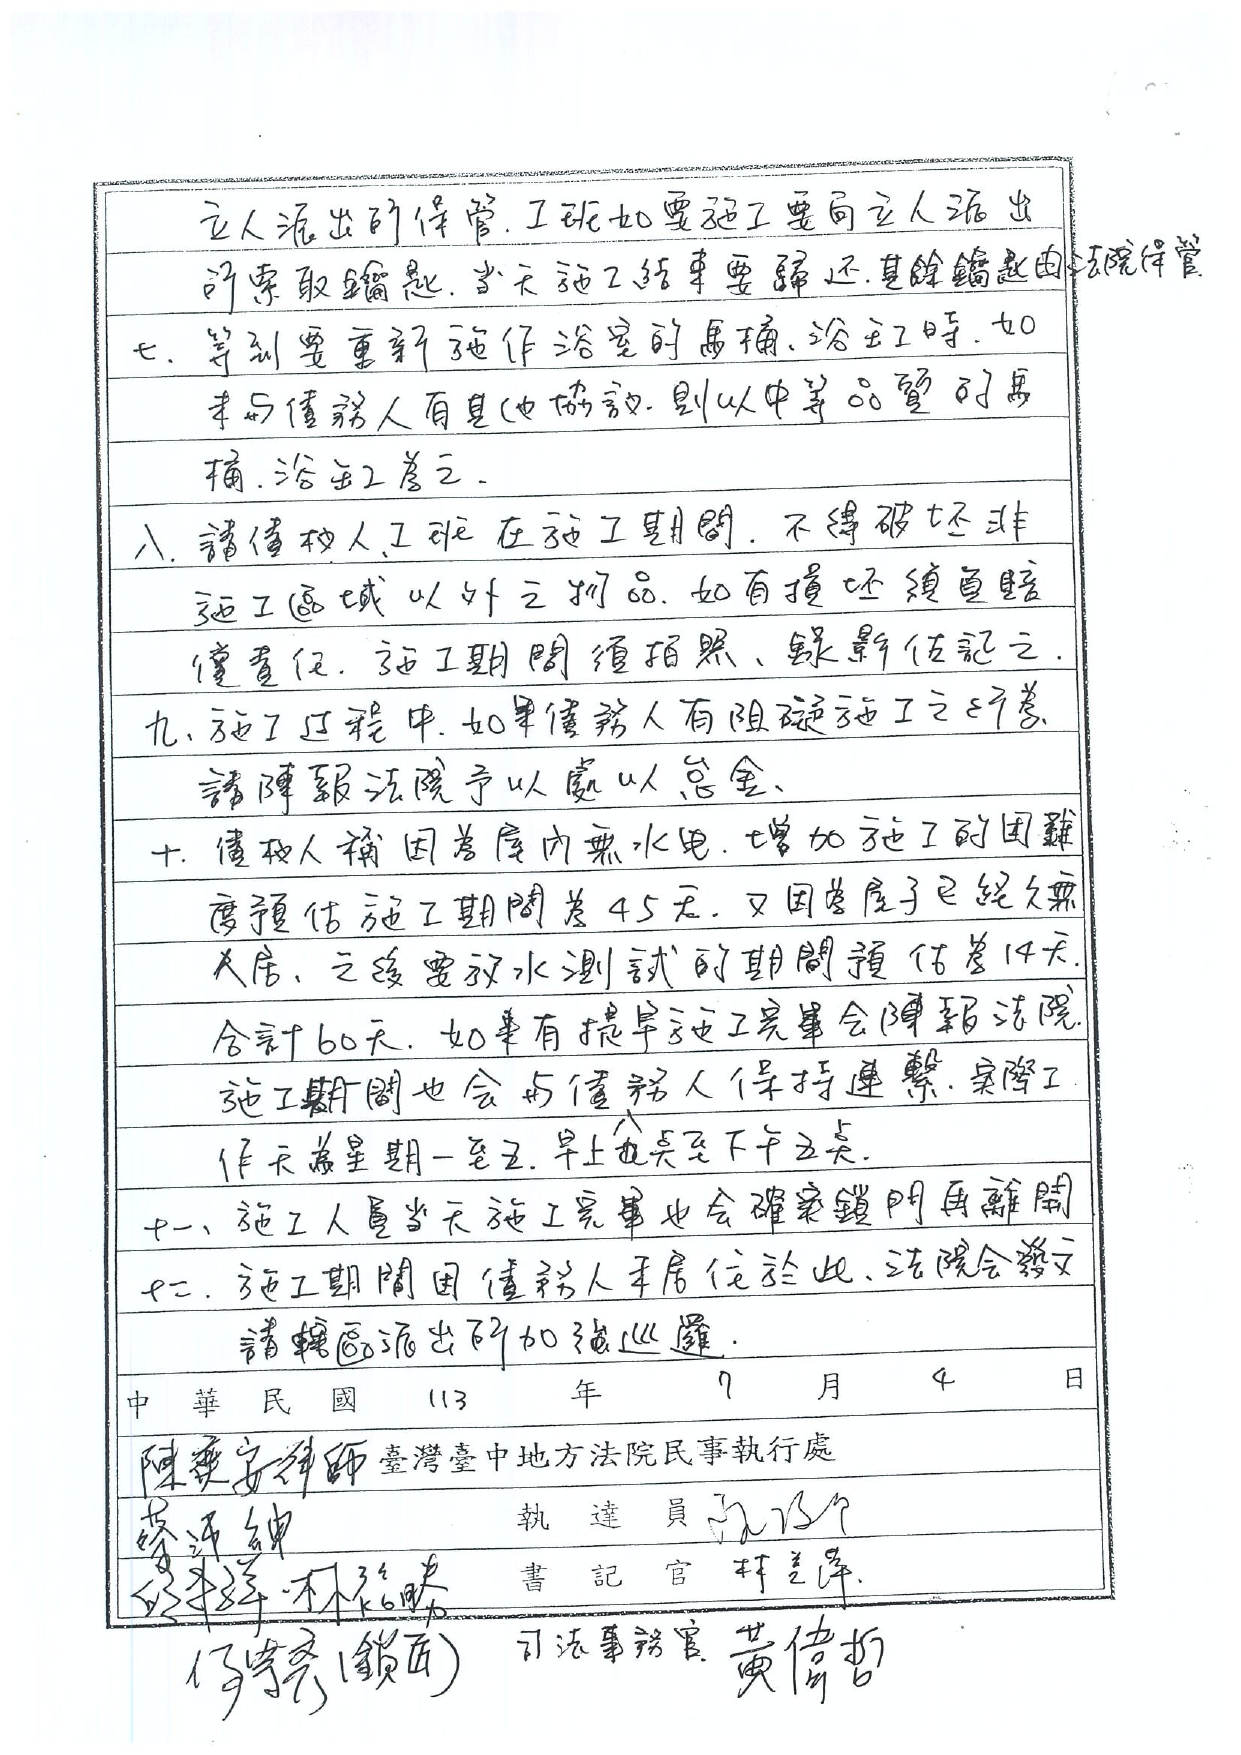 立人派出所保管.工班如要施工要向立人派出
所索取鑰匙.當天施工結束要歸还.其餘鑰匙由法院保管.
七、等到要重新施作浴室的馬桶、浴缸時.如
未与債務人有其他協議.則以中等品質的馬
桶.浴缸為之.
八.請債权人、工班在施工期間.不得破坏非
施工區域以外之物品.如有損坏須負賠
償責任.施工期間須拍照、錄影佐記之.
九、施工过程中.如果債務人有阻礙施工之行為、
請陳報法院予以處以怠金、
十、債权人稱因為屋內無水电.增加施工的困難
度預估施工期間為45天.又因為房子已經久無
人居、之後要放水測試的期間預估為14天.
合計60天.如果有提早施工完畢会陳報法院.
施工期間也会与債務人保持連繫.实際工
作天為星期一至五.早上八点至下午五点.
十一、施工人員當天施工完畢也会確實鎖門再離開
十二.施工期間因債務人未居住於此、法院会發文
請轄區派出所加強巡邏.
中華民國 113 年 7 月 4 日
陳奕安律師 臺灣臺中地方法院民事執行處
執達員
書記官 林
(鎖匠) 司法事務官 黃偉哲